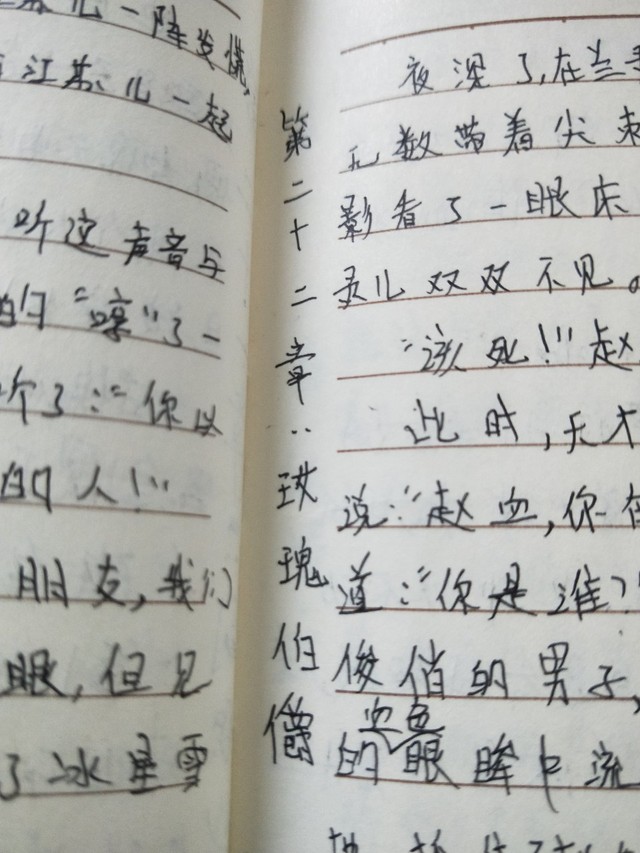 儿一阵发慌,
江苏儿一起
听这声音与
的"嚎"了一
个了:"你以
的人!"
朋友,我们
眼,但见
了冰星雪
第二十二章:玫瑰伯爵
夜深了,在兰
无数带着尖刺
影看了一眼床
灵儿双双不见。
"该死!"赵
此时,天才
说:"赵血,你
道:"你是谁?
俊俏的男子,
的血色眼眸中流